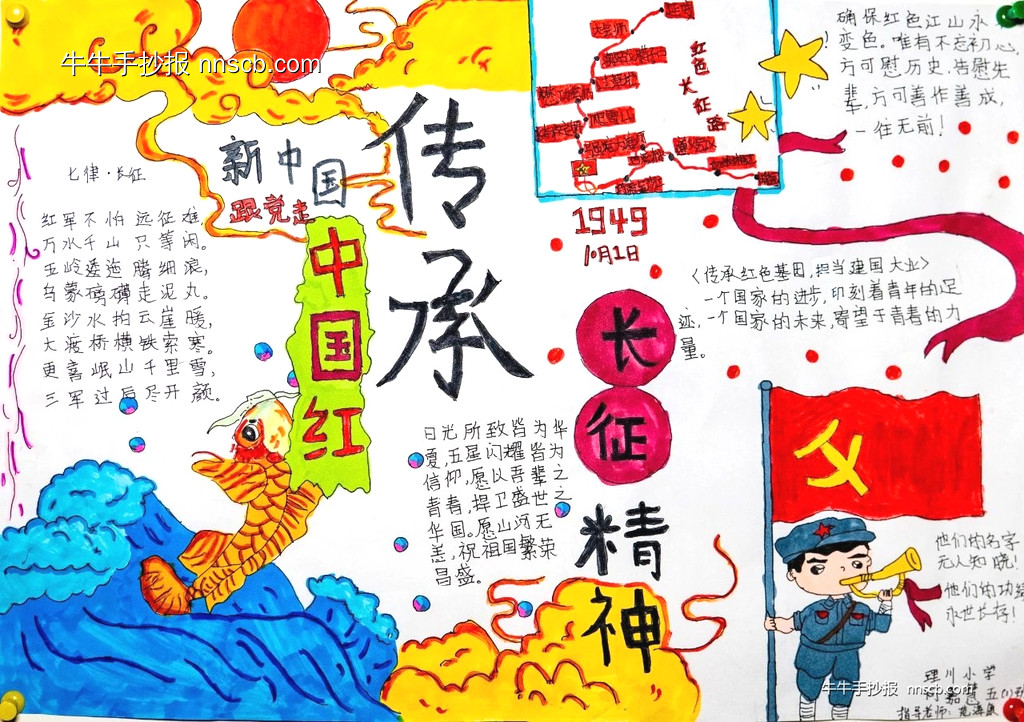 牛牛手抄报 nnscb.com
新中国
跟党走
中国红
传承
长征精神
红色长征路
1949
10月1日
七律·长征
红军不怕远征难
万水千山只等闲。
五岭逶迤腾细浪,
乌蒙磅礴走泥丸。
金沙水拍云崖暖,
大渡桥横铁索寒。
更喜岷山千里雪,
三军过后尽开颜。
日光所致皆为华
夏,五星闪耀皆为
信仰,愿以吾辈之
青春,捍卫盛世之
华国。愿山河无
恙,祝祖国繁荣
昌盛。
确保红色江山永
变色。唯有不忘初心,
方可慰历史,告慰先
辈,方可善作善成,
一往无前!
〈传承红色基因,担当建国大业〉
一个国家的进步,印刻着青年的足
迹,一个国家的未来,寄望于青春的力
量。
他们的名字
无人知晓!
他们的功绩
永世长存!
理川小学
嘉慧 五(1)
指导老师:
牛牛手抄报 nnscb.com